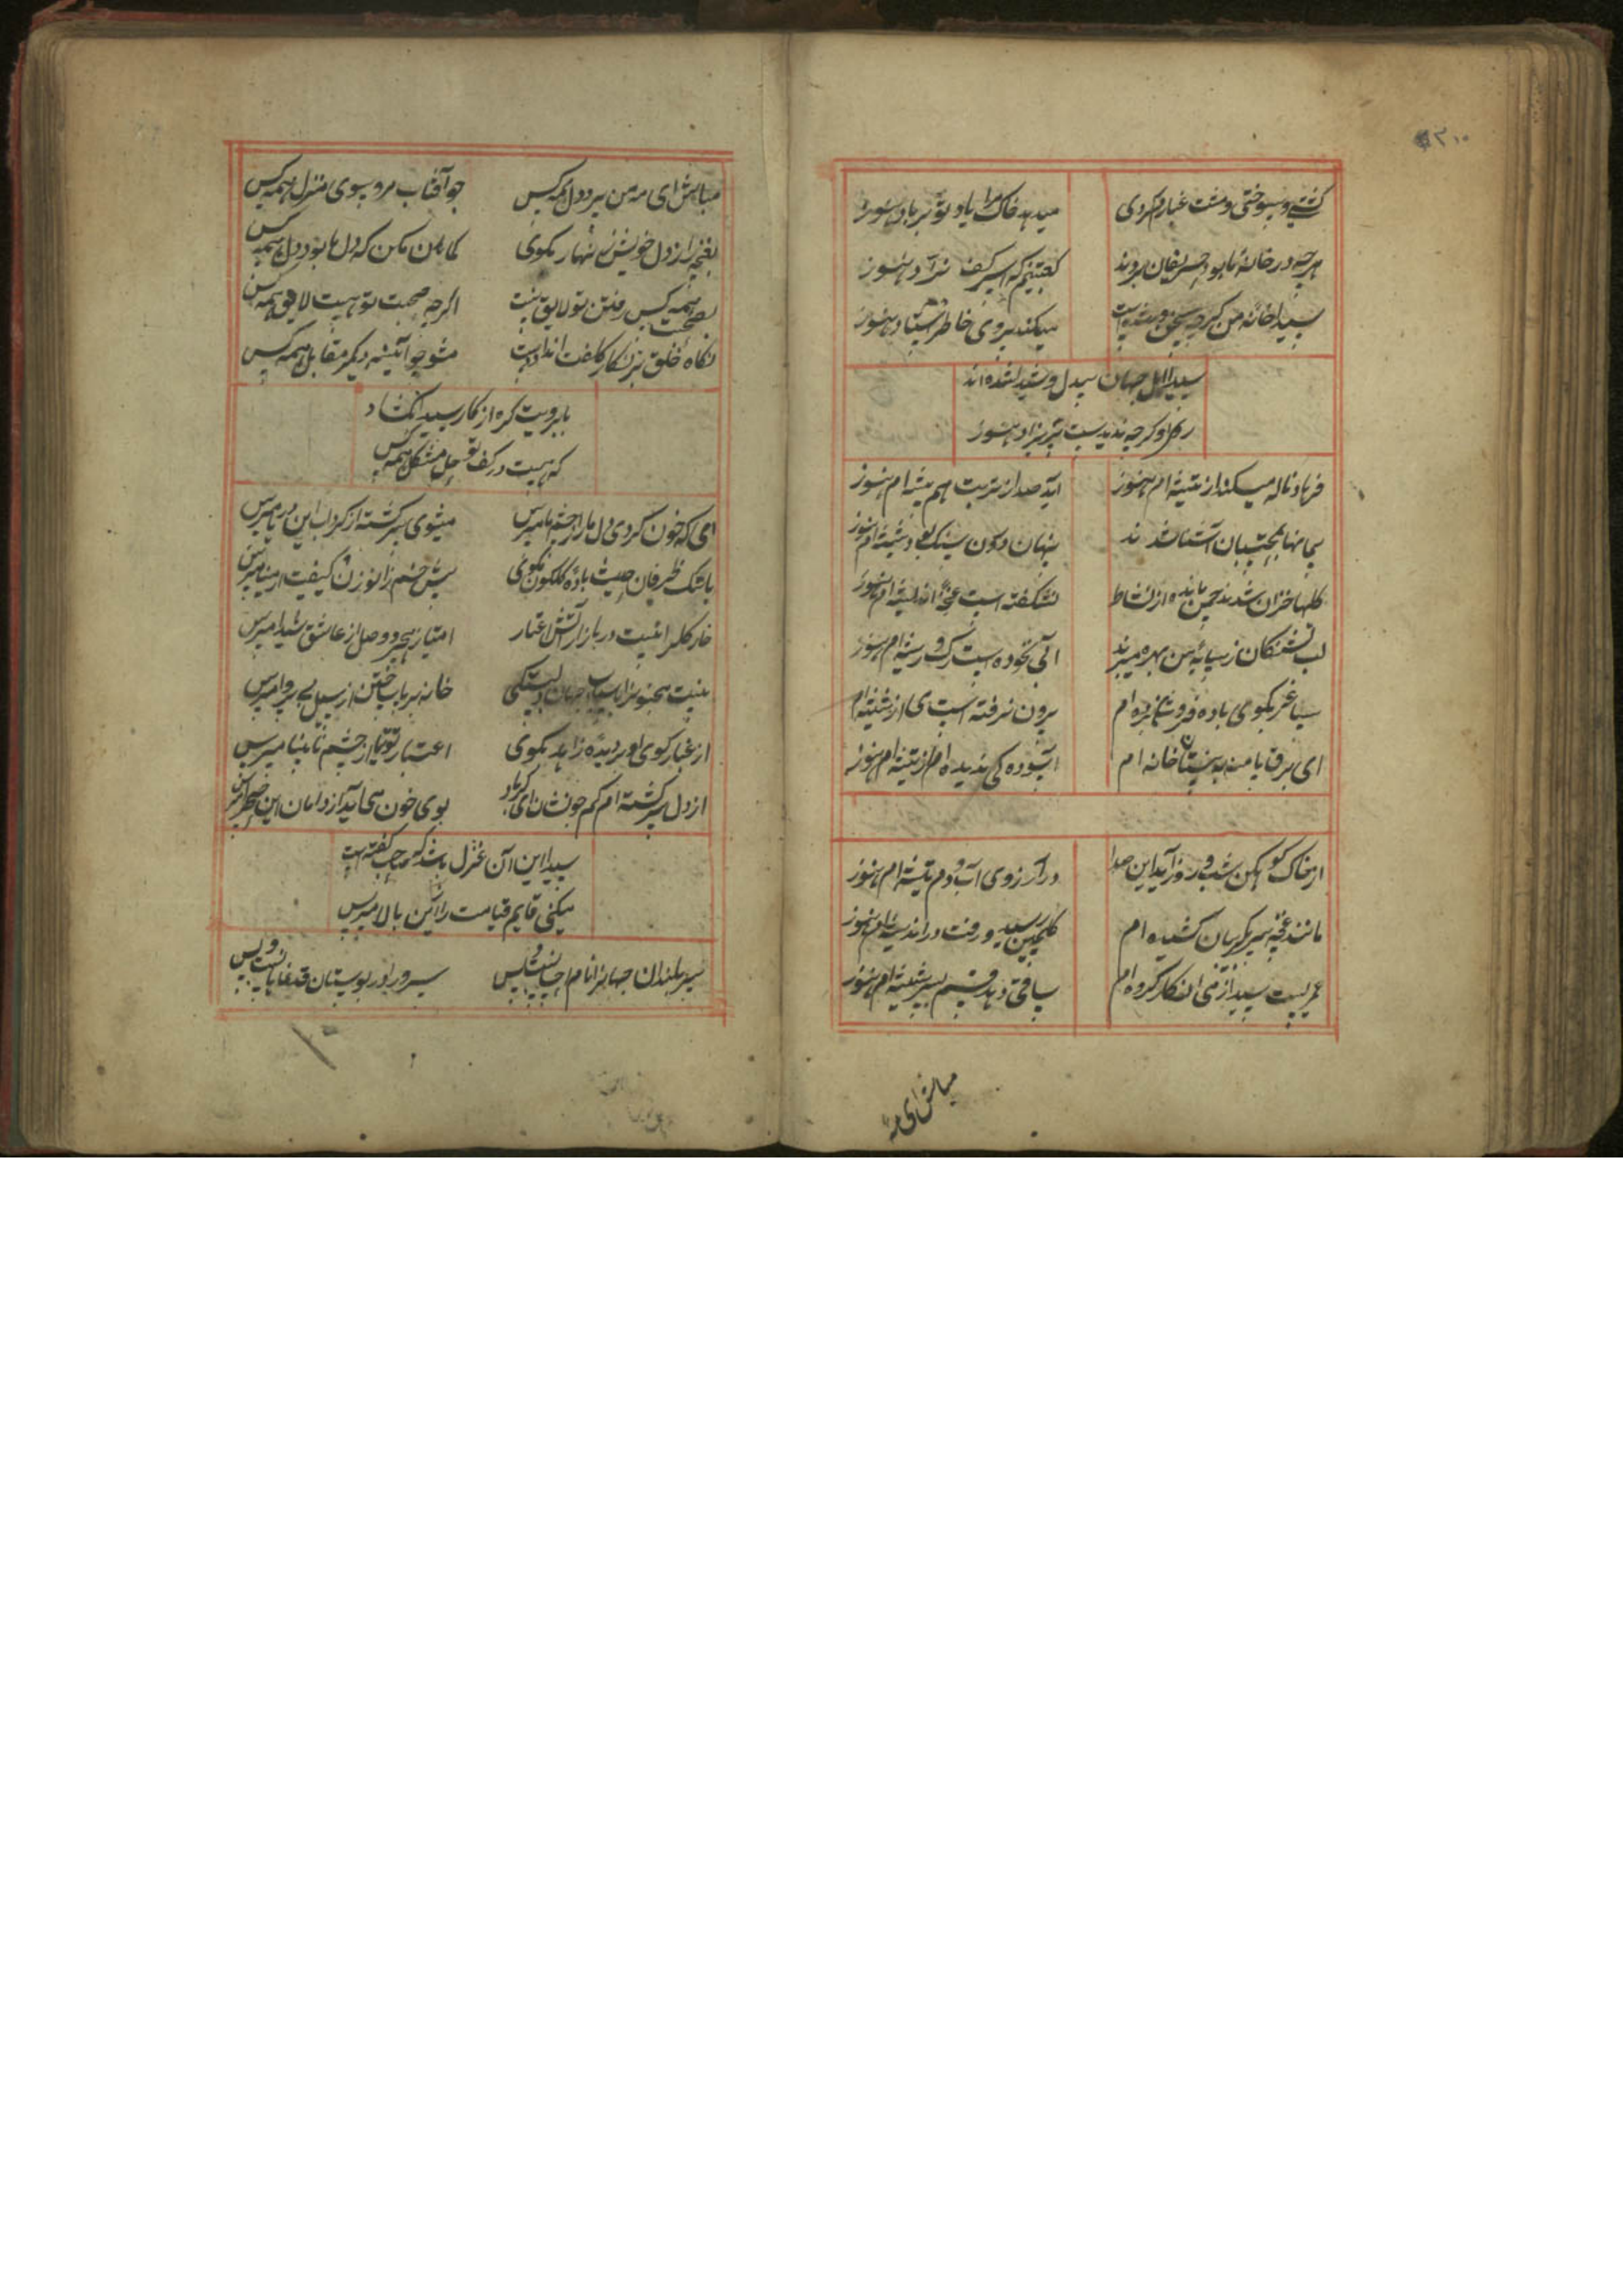 ۲۱۰
کشتی و سوختی و مشت غبارم کردی
میدهد خاک مرا یاد تو بر باد هنوز
هرچه در خانهٔ ما بود حریفان بردند
سیدا خانهٔ من کرچه
میکند سوی خاطر هنوز
سیدا اهل جهان بیدل و شیدا شده اند
کرچه ندیدست پریزاد هنوز
فرهاد ناله میکند از تیشه ام هنوز
آید صدا ز تربت هم پیشه ام هنوز
آشنا شدند
پنهان درون سنک بود شیشه ام هنوز
کلها خزان شدند چمن مانده از نشاط
نشکفته است غنچهٔ اندیشه ام هنوز
لب تشنکان ز سایهٔ من بهره میبرند
آبی نخورده است رک و ریشه ام هنوز
ساغر بکوی باده فروشان نبرده ام
برون نرفته است می از شیشه ام
ای برق پا منه به نیستان خانه ام
آسوده کی ندیده ام از تیشه ام هنوز
از خاک کوهکن شب و روز آید این صدا
در آرزوی آب دم تیشه ام هنوز
مانند غنچه سر بکریبان کشیده ام
کلچین رسید و رفت در اندیشه ام هنوز
عمریست سیدا ز می انکار کرده ام
ساقی دهد قسم بسر شیشه ام هنوز
مباش ای مه
مباش ای مه من سر و دل همه کس
چو آفتاب مرو بسوی منزل همه کس
بغنچه راز دل خویش زینهار مکوی
کمان مکن که دل ما بود دل همه کس
بصحبت همه کس رفتن تو لایق نیست
اکرچه صحبت تو هست لایق همه کس
نکاه خلق بزنکار کلفت اندودست
مشو چو آیینه دیکر مقابل همه کس
بابرویت کره از کار سیدا بکشاد
که هست در کف تو حل مشکل همه کس
ای که خون کردی دل ما را ز چشم ما مپرس
میشوی سرکشته از کرداب این دریا مپرس
با تنک ظرفان حدیث باده کلکون مکوی
پیش خم زانو زن و کیفیت از مینا مپرس
خار کلرا نیست در بازار آتش اعتبار
امتیاز هجر و وصل از عاشق شیدا مپرس
نیست مجنونرا باسباب جهان دلبستکی
خانه بر باب ساختن از سیل بی پروا مپرس
از غبار کوی او بر دیده زاهد مکوی
اعتبار توتیا از چشم نابینا مپرس
از دل سرکشته ام کم جو نشان ای کردباد
بوی خون می آید از دامان این صحرا مپرس
سیدا این آن غزل باشد که صاحب کفته است
میکنی قایم قیامت را ازین بالا مپرس
سربلندان جهانرا نام احسانست و بس
سرو را در بوستان قد نمایانست و بس